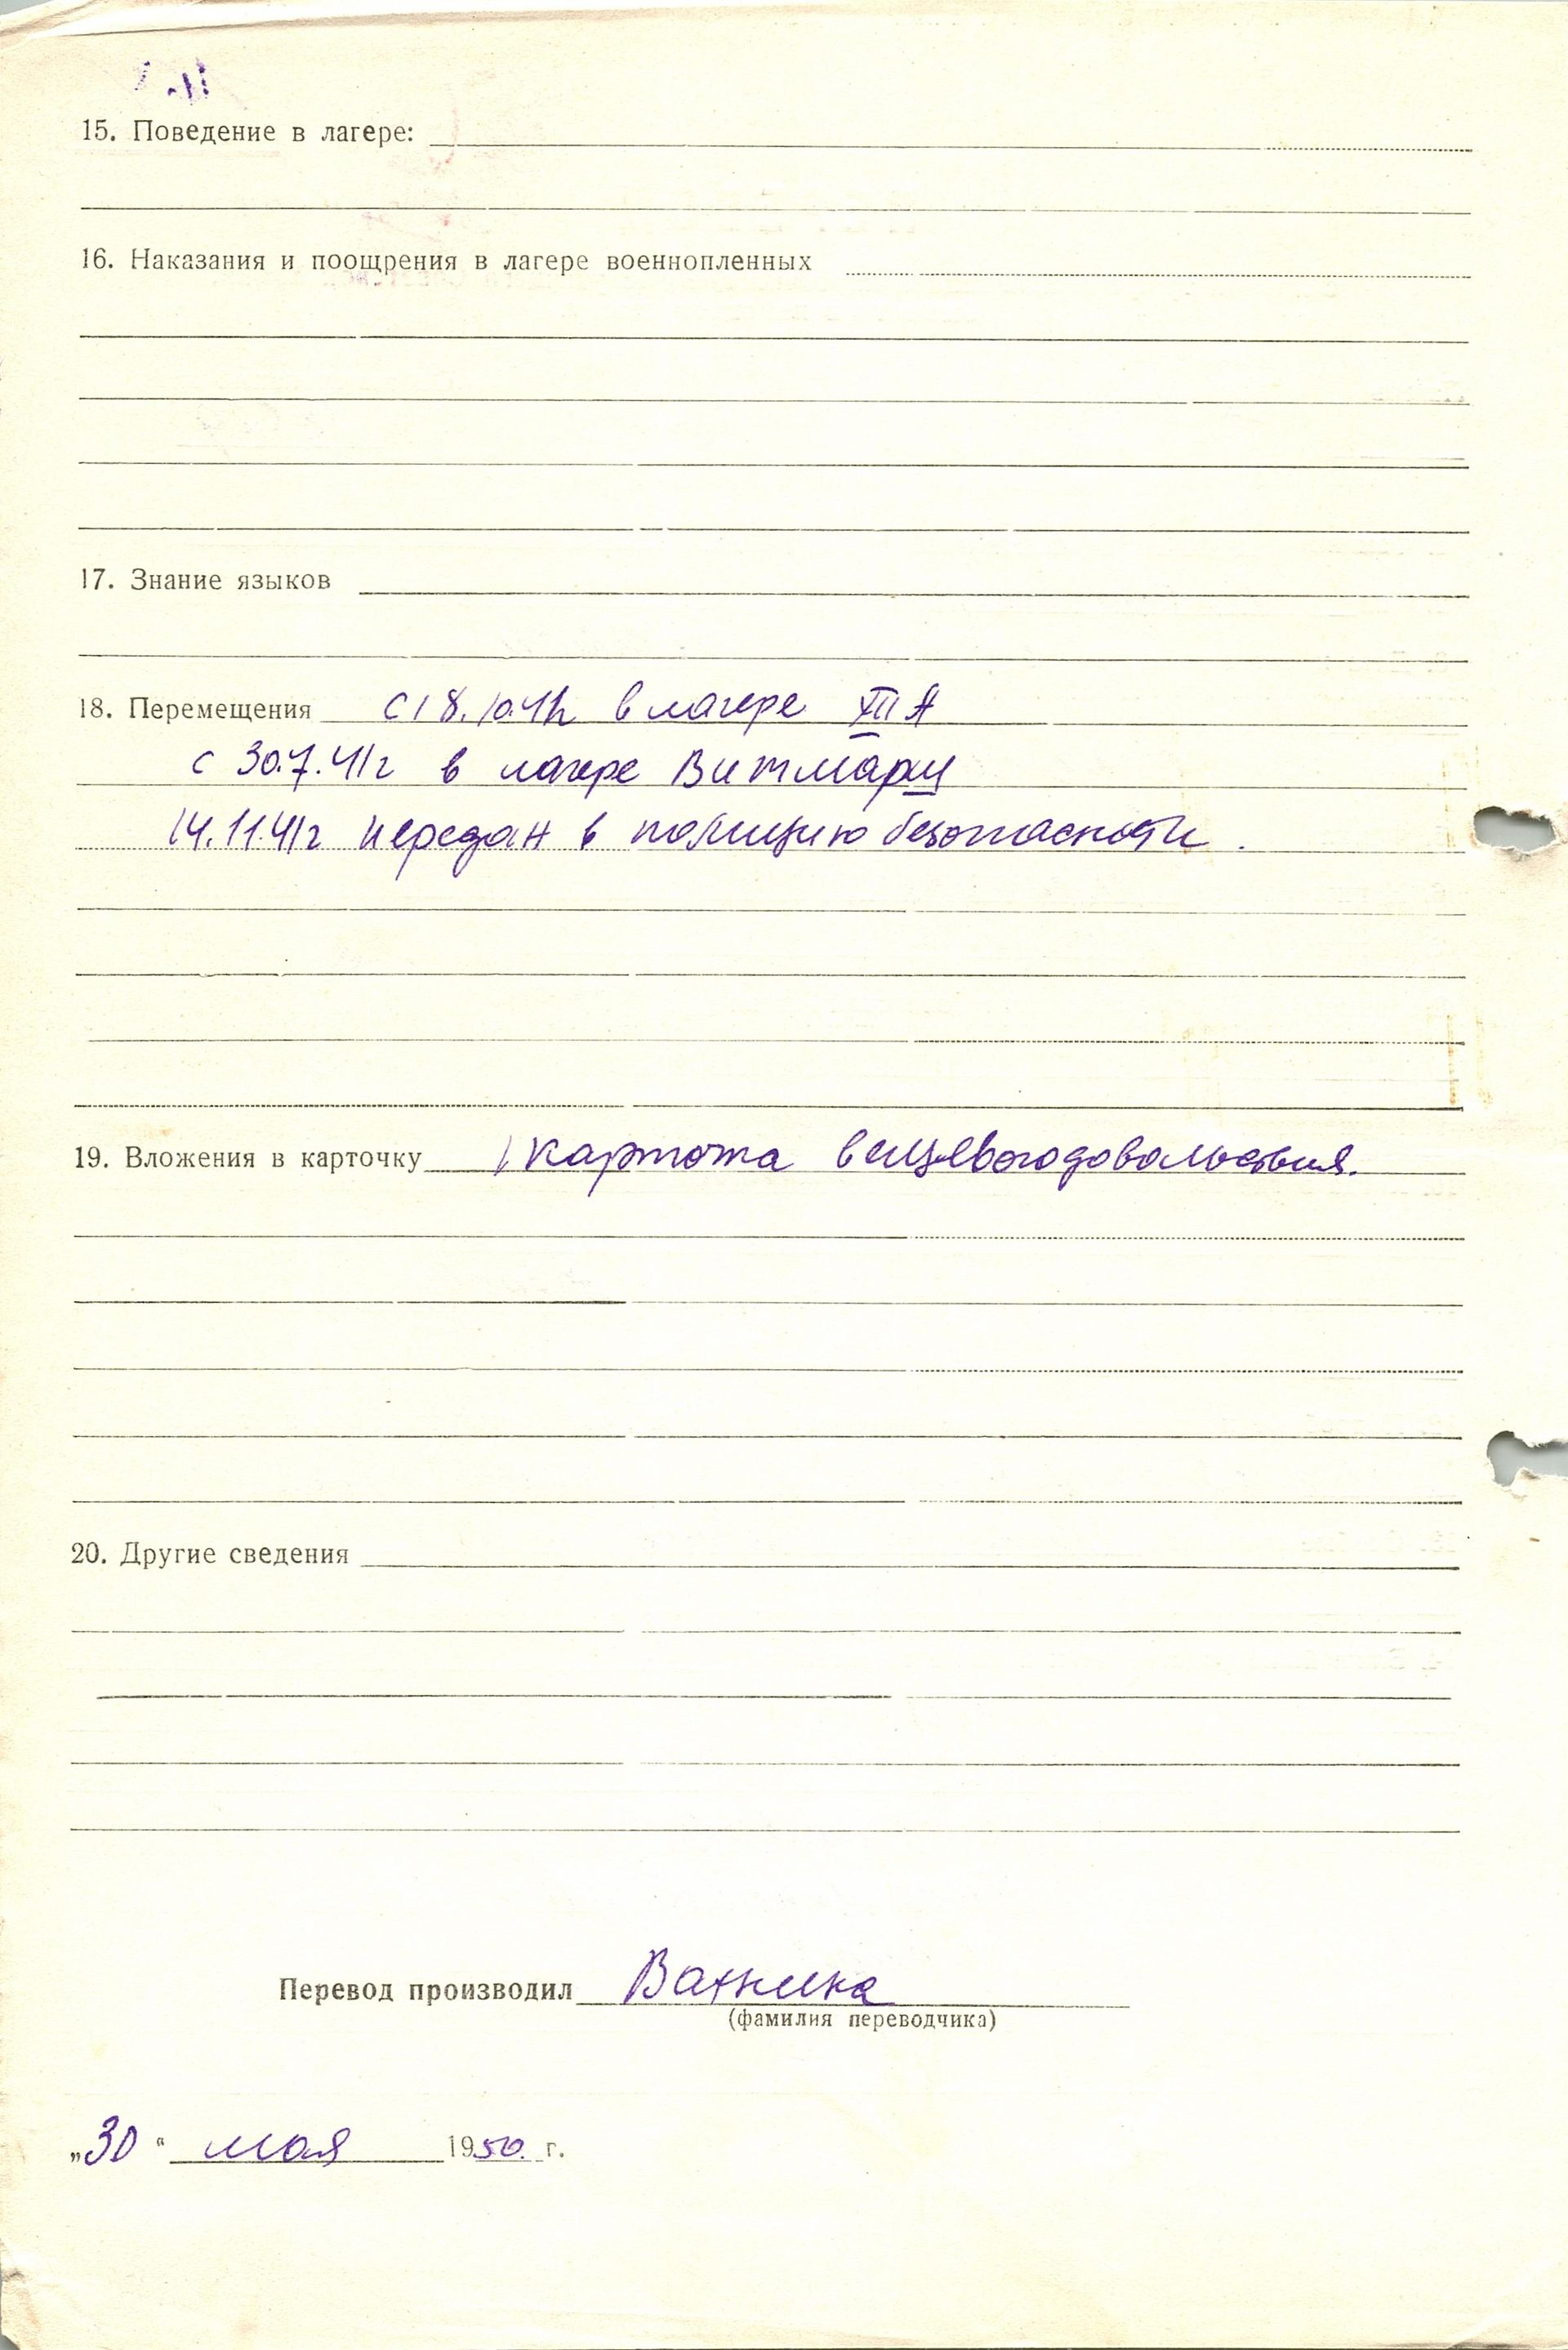 15. Поведение в лагере:
16. Наказания и поощрения в лагере военнопленных
17. Знание языков
18. Перемещения с 18.10.41г в лагере XIII А
с 30.7.41г в лагере Витмарщ
14.11.41г передан в полицию безопасности.
19. Вложения в карточку 1 картота вещевого довольствия.
20. Другие сведения
Перевод производил Вахнина
(фамилия переводчика)
„30“ мая 1950. г.